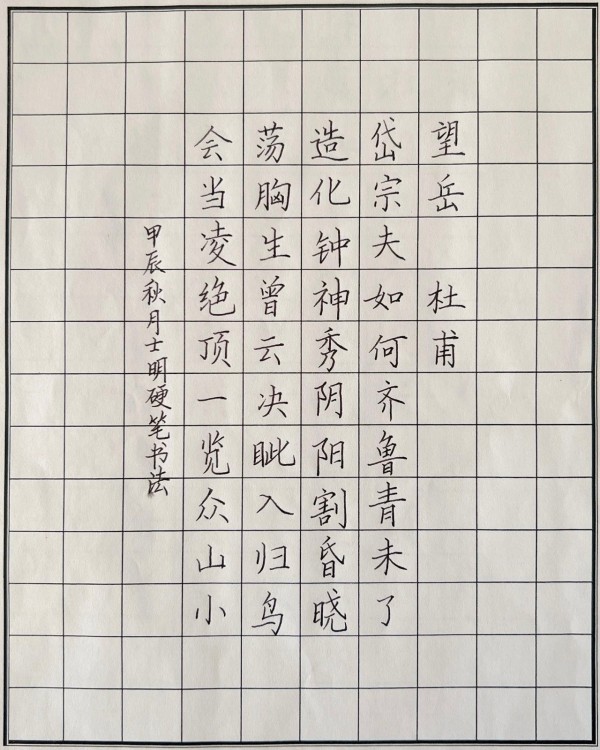 望岳 杜甫
岱宗夫如何齐鲁青未了
造化钟神秀阴阳割昏晓
荡胸生曾云决眦入归鸟
会当凌绝顶一览众山小
甲辰秋月士明硬笔书法